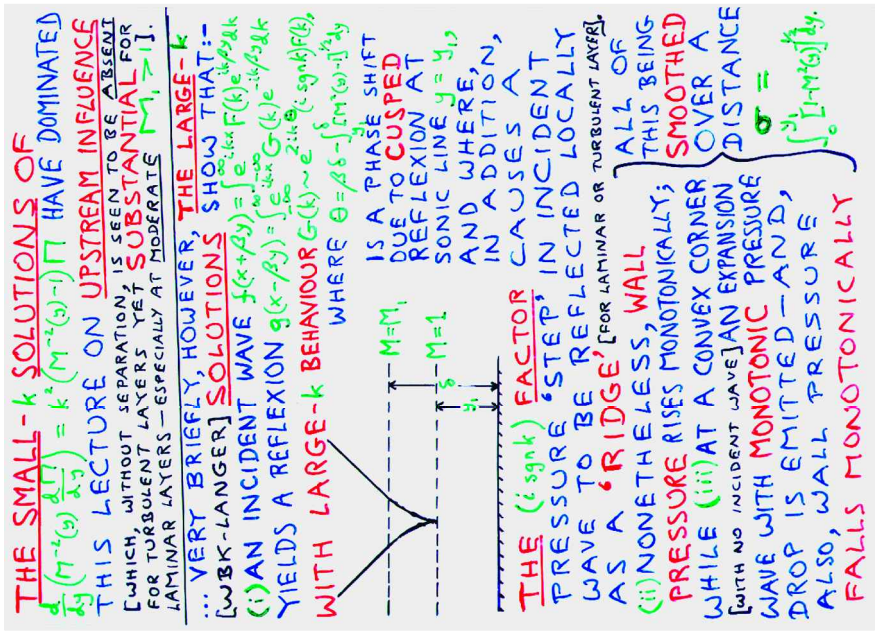 THE SMALL-k SOLUTIONS OF
d/dy (M⁻²(y) dΠ/dy) = k²(M⁻²(y)-1)Π HAVE DOMINATED
THIS LECTURE ON UPSTREAM INFLUENCE
[WHICH, WITHOUT SEPARATION, IS SEEN TO BE ABSENT
FOR TURBULENT LAYERS YET SUBSTANTIAL FOR
LAMINAR LAYERS—ESPECIALLY AT MODERATE M₁ > 1].
... VERY BRIEFLY, HOWEVER, THE LARGE-k
[WBK-LANGER] SOLUTIONS SHOW THAT:-
(i) AN INCIDENT WAVE f(x+βy) = ∫_{-∞}^{∞} e^{ikx} F(k) e^{ikβy} dk
YIELDS A REFLEXION g(x-βy) = ∫_{-∞}^{∞} e^{ikx} G(k) e^{-ikβy} dk
WITH LARGE-k BEHAVIOUR G(k) ~ e^{2ikθ} (i sgn k) F(k),
WHERE θ = βδ - ∫_{y₁}^{δ} [M²(y)-1]^{1/2} dy
IS A PHASE SHIFT
DUE TO CUSPED
REFLEXION AT
SONIC LINE y = y₁,
AND WHERE,
IN ADDITION,
M=M₁
M=1
δ
y₁
THE (i sgn k) FACTOR CAUSES A
PRESSURE 'STEP' IN INCIDENT
WAVE TO BE REFLECTED LOCALLY
AS A 'RIDGE' [FOR LAMINAR OR TURBULENT LAYER].
(ii) NONETHELESS, WALL
PRESSURE RISES MONOTONICALLY;
WHILE (iii) AT A CONVEX CORNER
[WITH NO INCIDENT WAVE] AN EXPANSION
WAVE WITH MONOTONIC PRESSURE
DROP IS EMITTED—AND,
ALSO, WALL PRESSURE
FALLS MONOTONICALLY
ALL OF
THIS BEING
SMOOTHED
OVER A
DISTANCE
σ =
∫_{0}^{y₁} [1-M²(y)]^{1/2} dy.